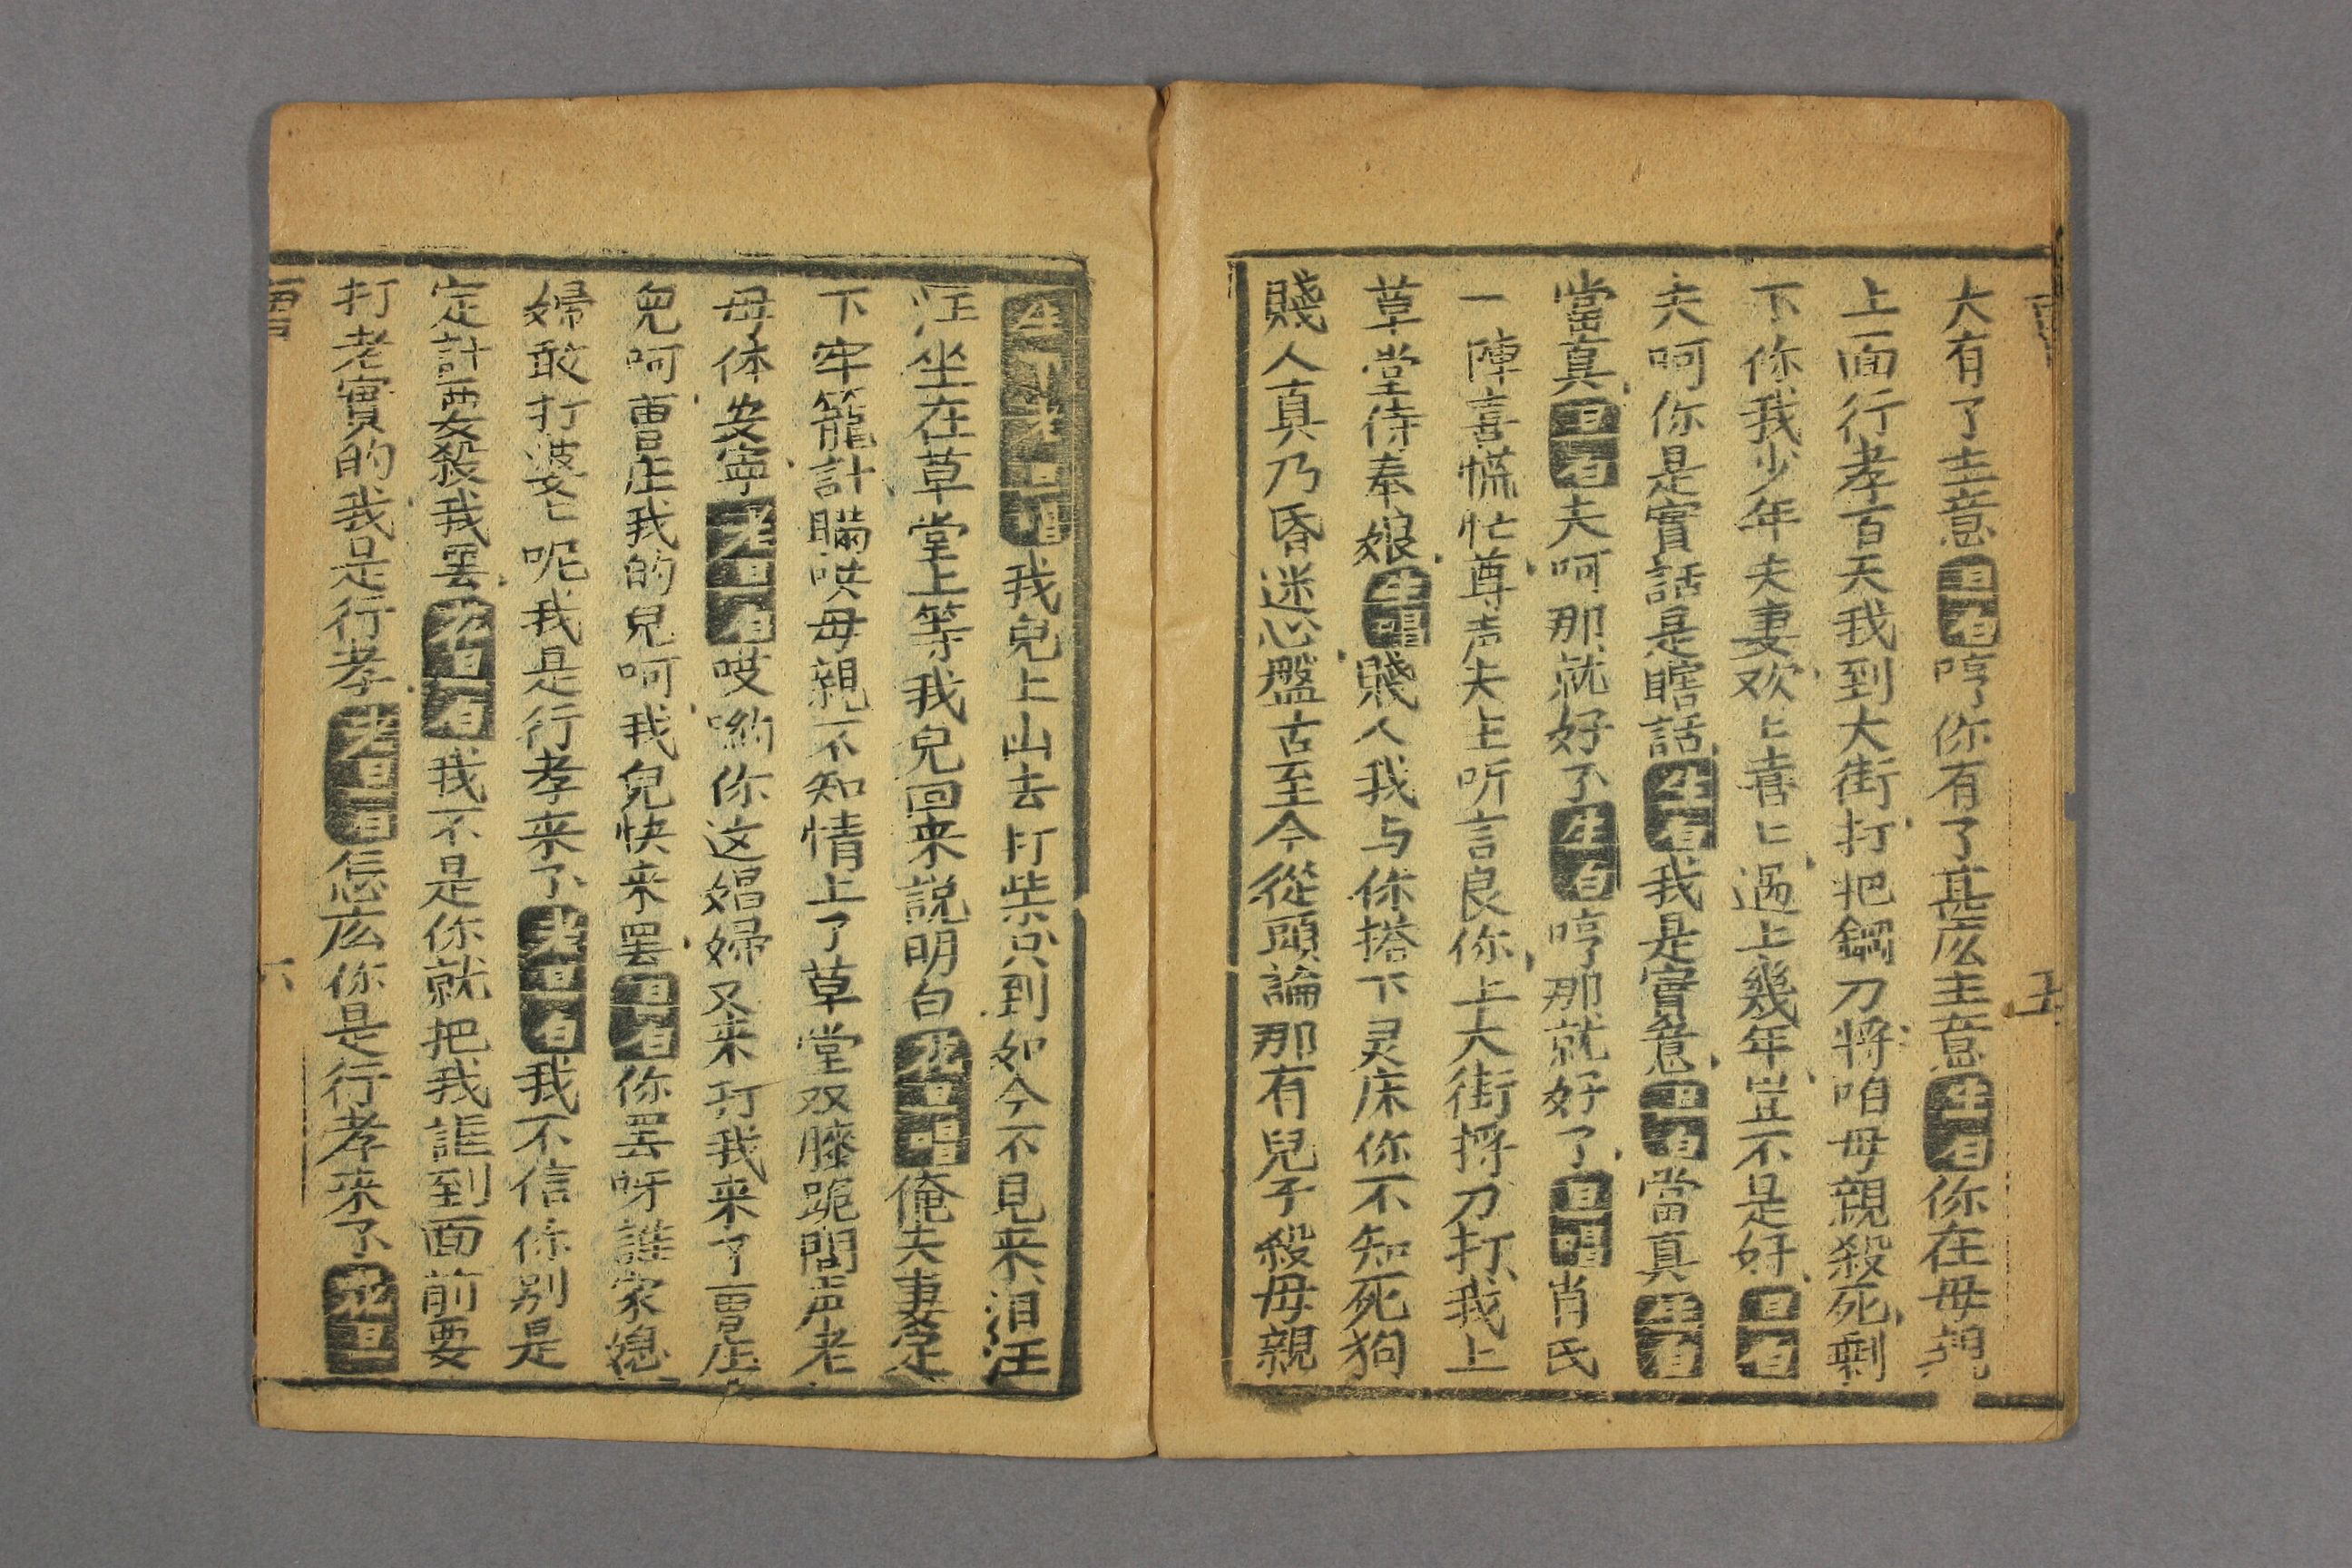 大有了主意旦白哼你有了甚庅主意生白你在母親
上面行孝百天我到大街打把鋼刀將咱母親殺死剩
下你我少年夫妻欢匕喜匕過上幾年岂不是好旦白
夫呵你是實話是瞎話生白我是實意旦白當真生白
當真旦白夫呵那就好了生白哼那就好了旦唱肖氏
一陣喜慌忙尊声夫主听言良你上大街捋刀打我上
草堂侍奉娘生唱賤人我与你搭下灵床你不知死狗
賤人真乃昏迷心盤古至今從頭論那有兒子殺母親
五
生下老旦唱我兒上山去打柴只到如今不見来泪汪
汪坐在草堂上等我兒回来説明白老旦唱俺夫妻定
下牢籠計瞞哄母親不知情上了草堂双膝跪問声老
母体安寧老旦白哎喲你这娼婦又来打我来了曹庄
兒呵曹庄我的兒呵我兒快来罢旦白你罢呀誰家媳
婦敢打婆匕呢我是行孝来了老旦白我不信你别是
定計要殺我罢老旦白我不是你就把我誆到面前要
打老實的我是行孝老旦白怎庅你是行孝来了老旦
曹
六